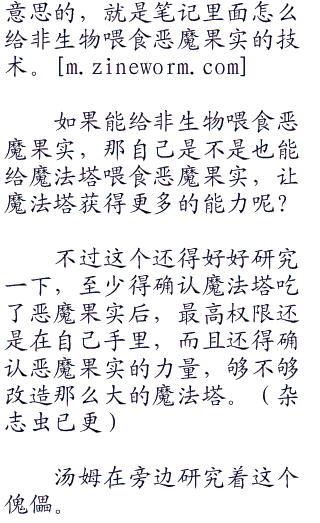 意思的，就是笔记里面怎么
给非生物喂食恶魔果实的技
术。[m.zineworm.com]
如果能给非生物喂食恶
魔果实，那自己是不是也能
给魔法塔喂食恶魔果实，让
魔法塔获得更多的能力呢？
不过这个还得好好研究
一下，至少得确认魔法塔吃
了恶魔果实后，最高权限还
是在自己手里，而且还得确
认恶魔果实的力量，够不够
改造那么大的魔法塔。（杂
志虫已更）
汤姆在旁边研究着这个
傀儡。